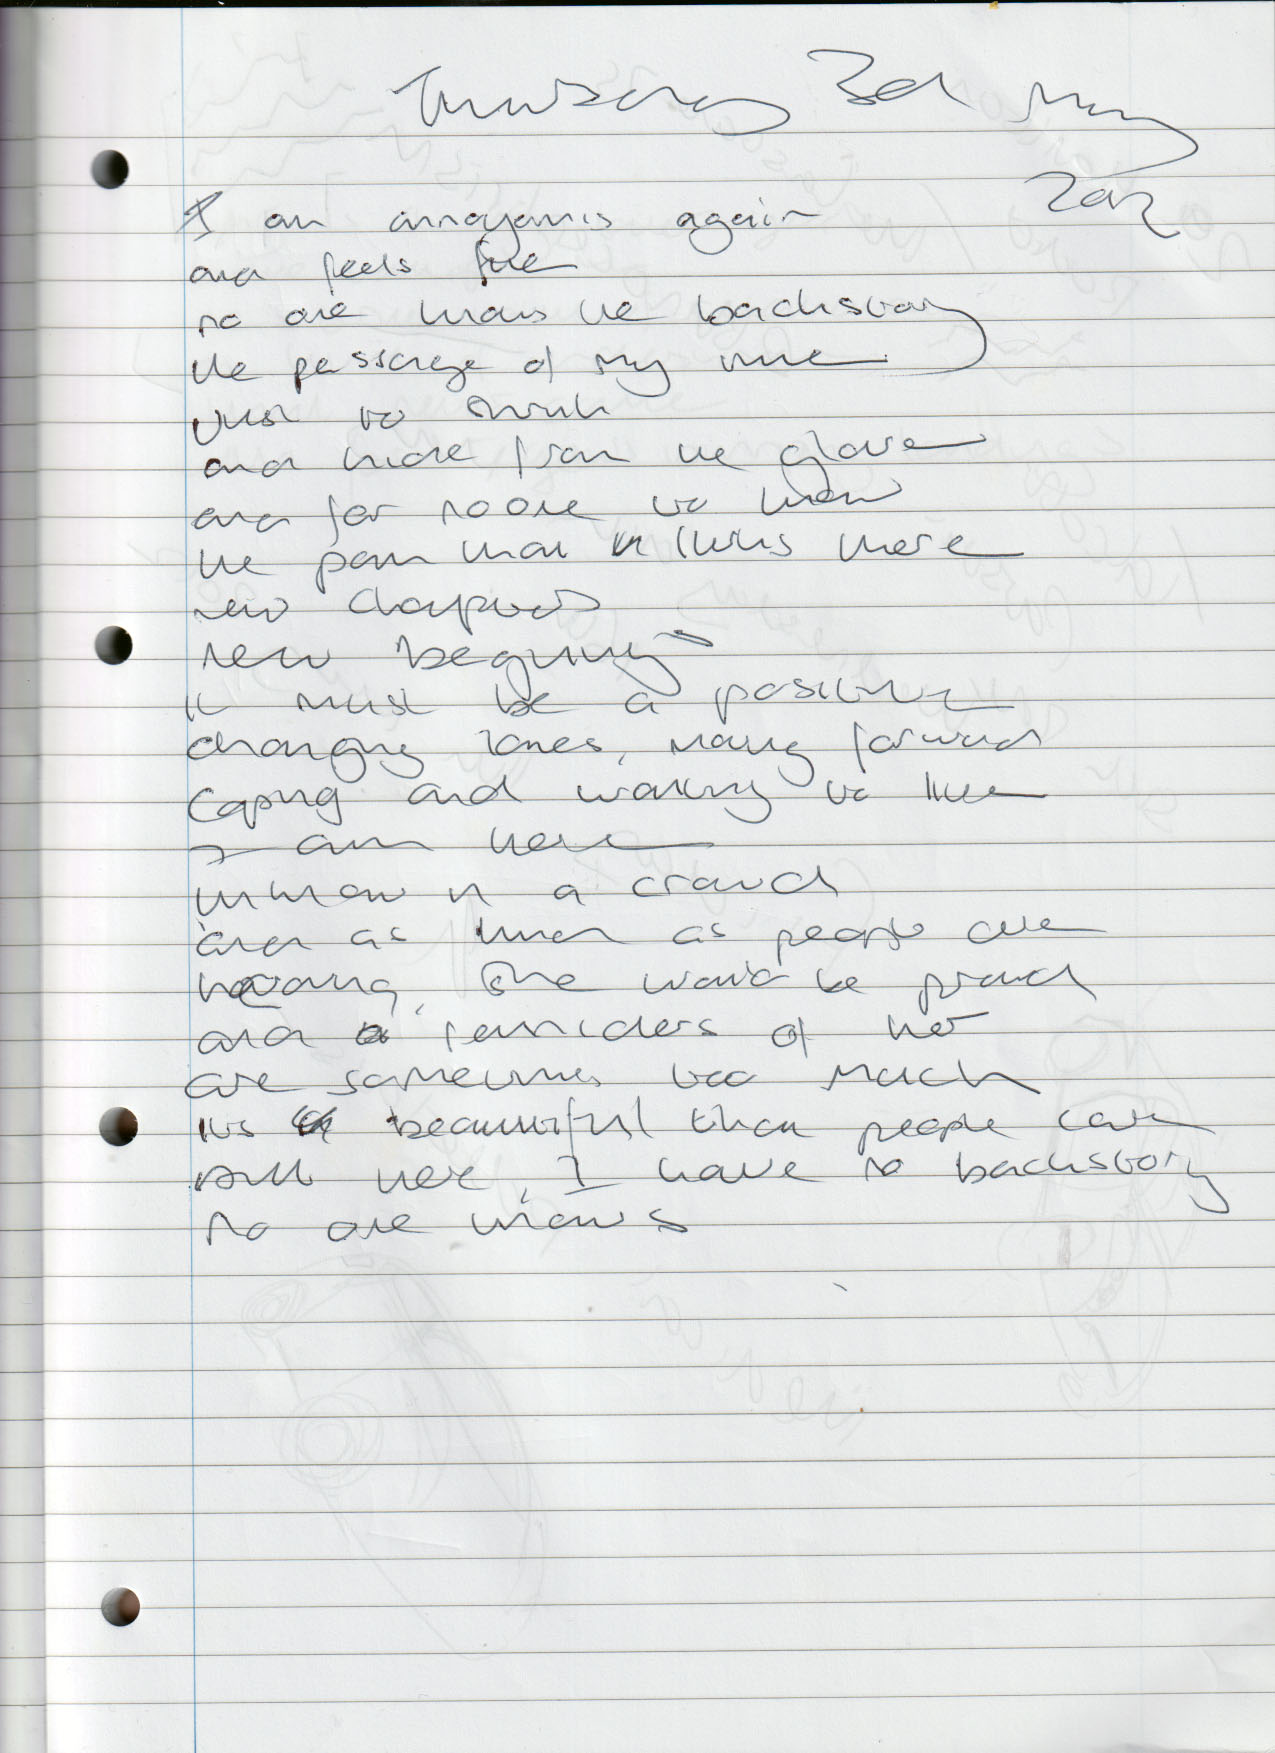 Thursday 3rd May
2012
I am annoymis again
and feels fine
no one knows the backstory
the passage of my time
just to drink
and hide from the glare
and for no one to know
the pain that lurks there
new chapters
new beginnings
it must be a positive
changing lanes, moving forward
coping and working to live
I am here
unknown in a crowd
and as kind as people are
, she would be proud
and reminders of her
are sometimes too much
its beautiful that people care
still her, I have no backstory
no one knows